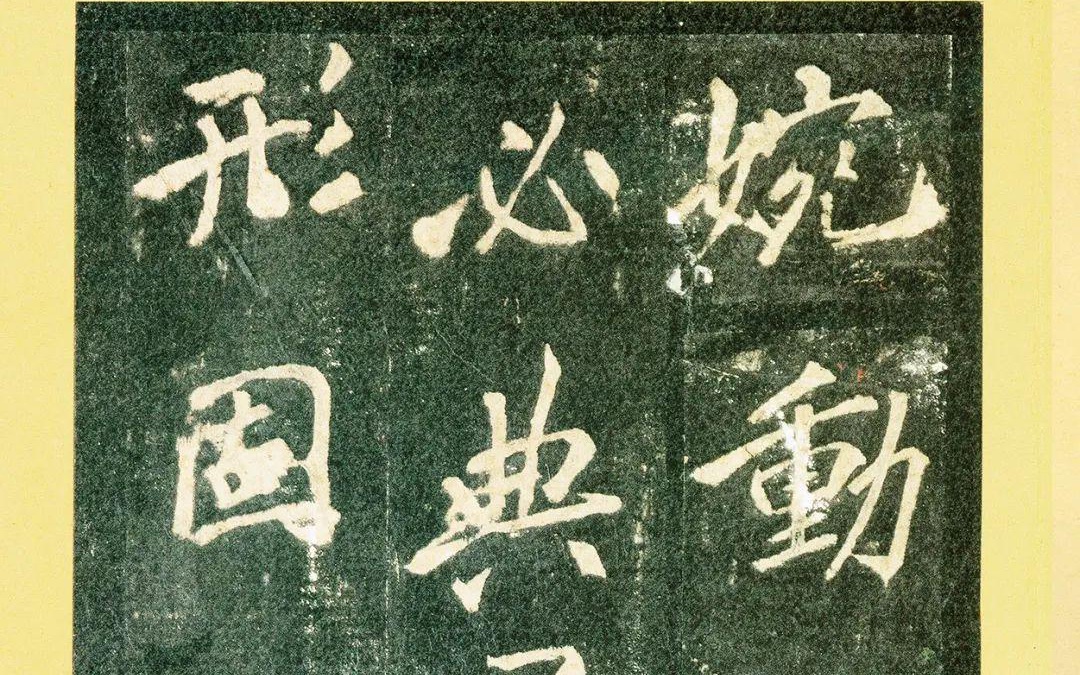 婉動
必典
形固